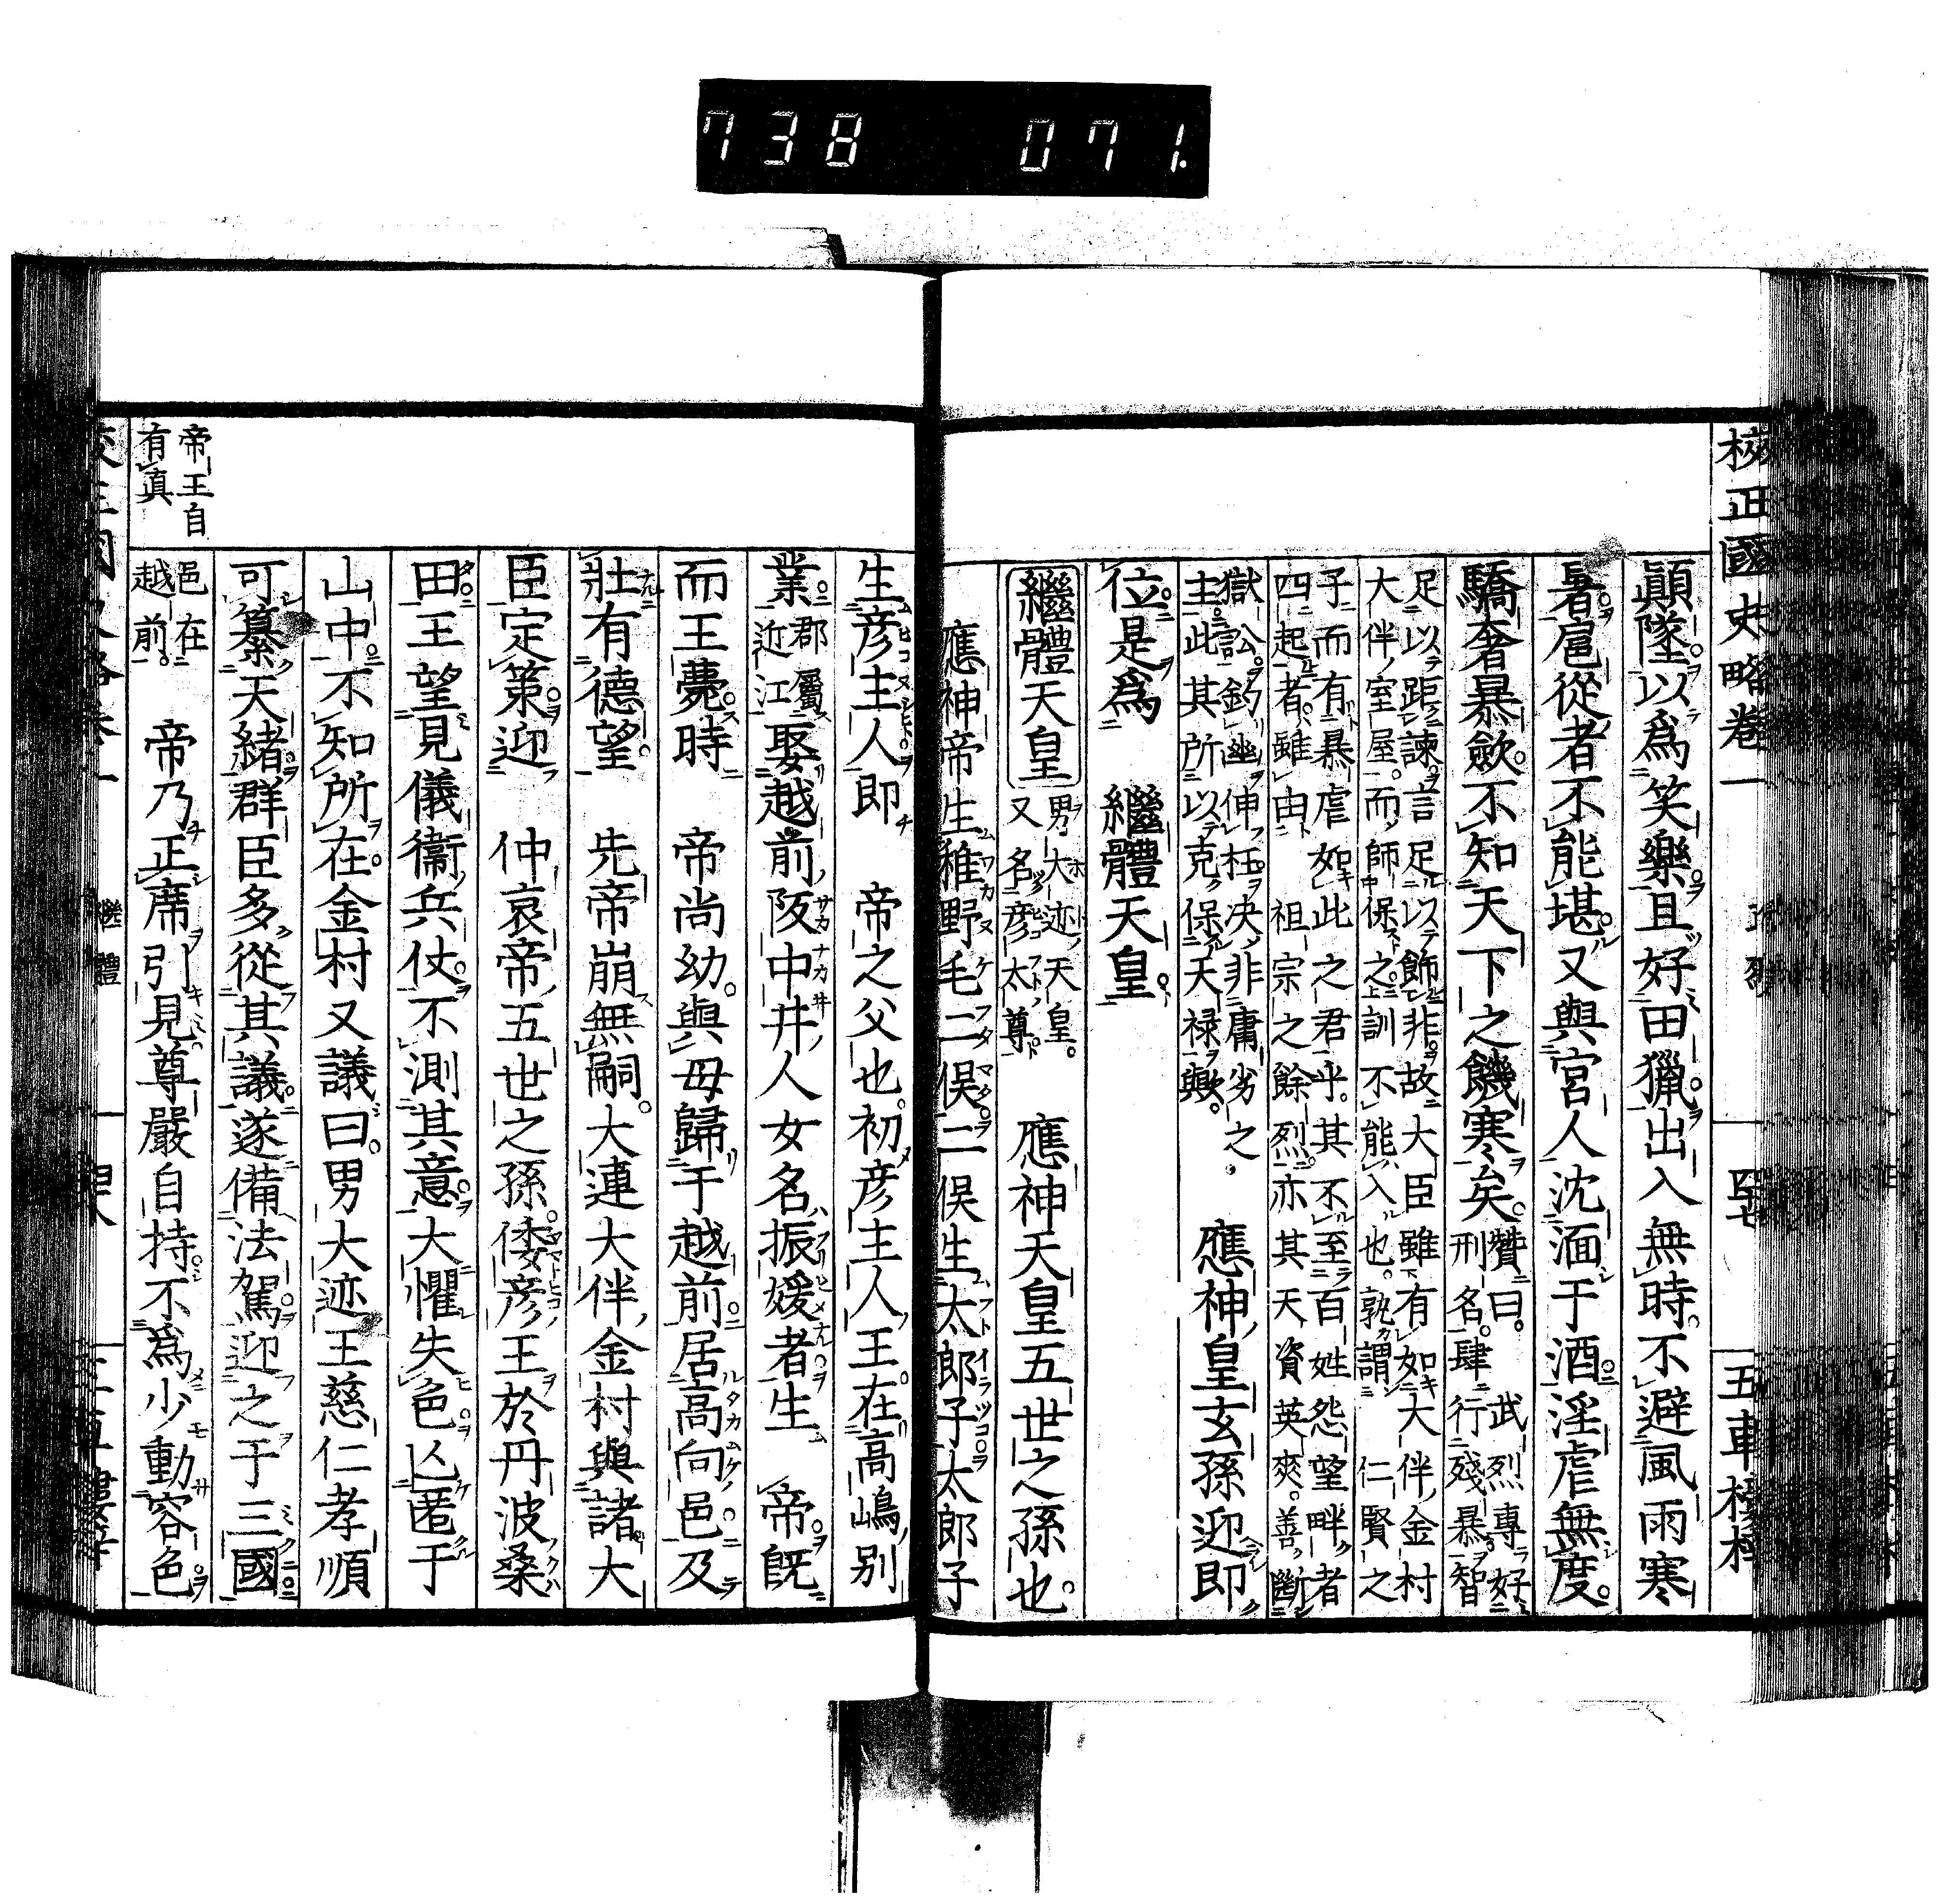 738 071.
校正國史略卷一
四十七
五車樓梓
顚墜以爲笑樂且好田獵出入無時不避風雨寒
暑扈從者不能堪又與宮人沈湎于酒淫虐無度
驕奢暴歛不知天下之饑寒矣。贊曰。武烈專好刑名。肆行殘暴智
足以距諫言足以飾非故大臣雖有如大伴金村
大伴室屋。而師保之訓不能入也。孰謂仁賢之
子而有暴虐如此之君乎。其不至百姓怨望畔者
四起者雖由祖宗之餘烈亦其天資英爽。善斷
獄訟鈎幽伸枉决非庸劣之
主此其所以克保天禄歟。
應神皇玄孫迎即
位是爲 繼體天皇
繼體天皇 男大迹天皇。又名彦太尊 應神天皇五世之孫也。
應神帝生稚野毛二俣二俣生太郎子太郎子
生彦主人即 帝之父也初彦主人王在高嶋別
業郡屬近江娶越前阪中井人女名振媛者生 帝旣
而王薨時 帝尚幼與母歸于越前居高向邑及
壯有德望 先帝崩無嗣大連大伴金村與諸大
臣定策迎 仲哀帝五世之孫倭彦王於丹波桑
田王望見儀衞兵仗不測其意大懼失色亾匿于
山中不知所在金村又議曰男大迹王慈仁孝順
可纂天緒群臣多從其議遂備法駕迎之于三國
邑在越前。 帝乃正席引見尊嚴自持不爲少動容色
帝王自
有眞
繼體